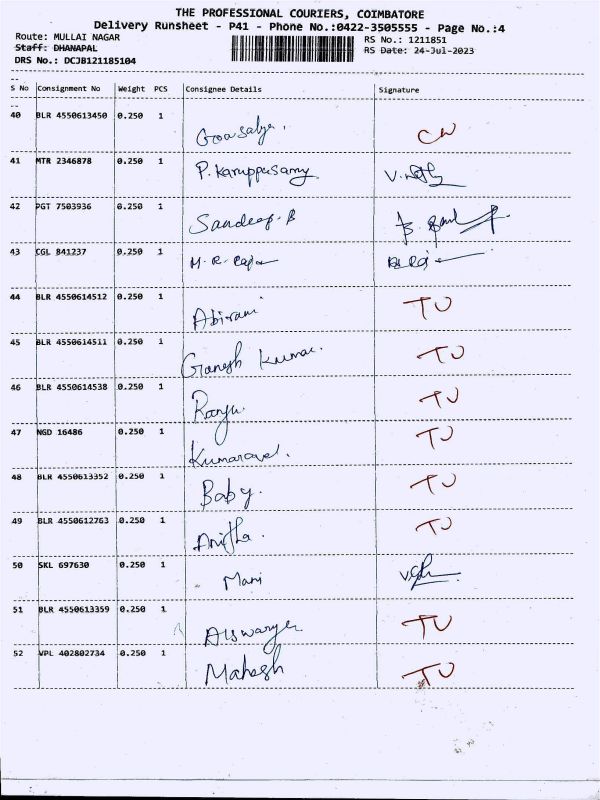 THE PROFESSIONAL COURIERS, COIMBATORE
Delivery Runsheet - P41 - Phone No.:0422-3505555 - Page No.:4
Route: MULLAI NAGAR RS No.: 1211851
Staff: DHANAPAL RS Date: 24-Jul-2023
DRS No.: DCJB121185104
S No Consignment No Weight PCS Consignee Details Signature
40 BLR 4550613450 0.250 1 CW
41 MTR 2346878 0.250 1 P. Karuppusamy
42 PGT 7503936 0.250 1 Sandeep. B
43 CGL 841237 0.250 1 M. R.
44 BLR 4550614512 0.250 1 Abirami TU
45 BLR 4550614511 0.250 1 Ganesh Kumar. TU
46 BLR 4550614538 0.250 1 Ranju. TU
47 NGD 16486 0.250 1 Kumaravel. TU
48 BLR 4550613352 0.250 1 Baby. TU
49 BLR 4550612763 0.250 1 Anitha. TU
50 SKL 697630 0.250 1 Mani
51 BLR 4550613359 0.250 1 Aiswarya TU
52 VPL 402802734 0.250 1 Mahesh TU